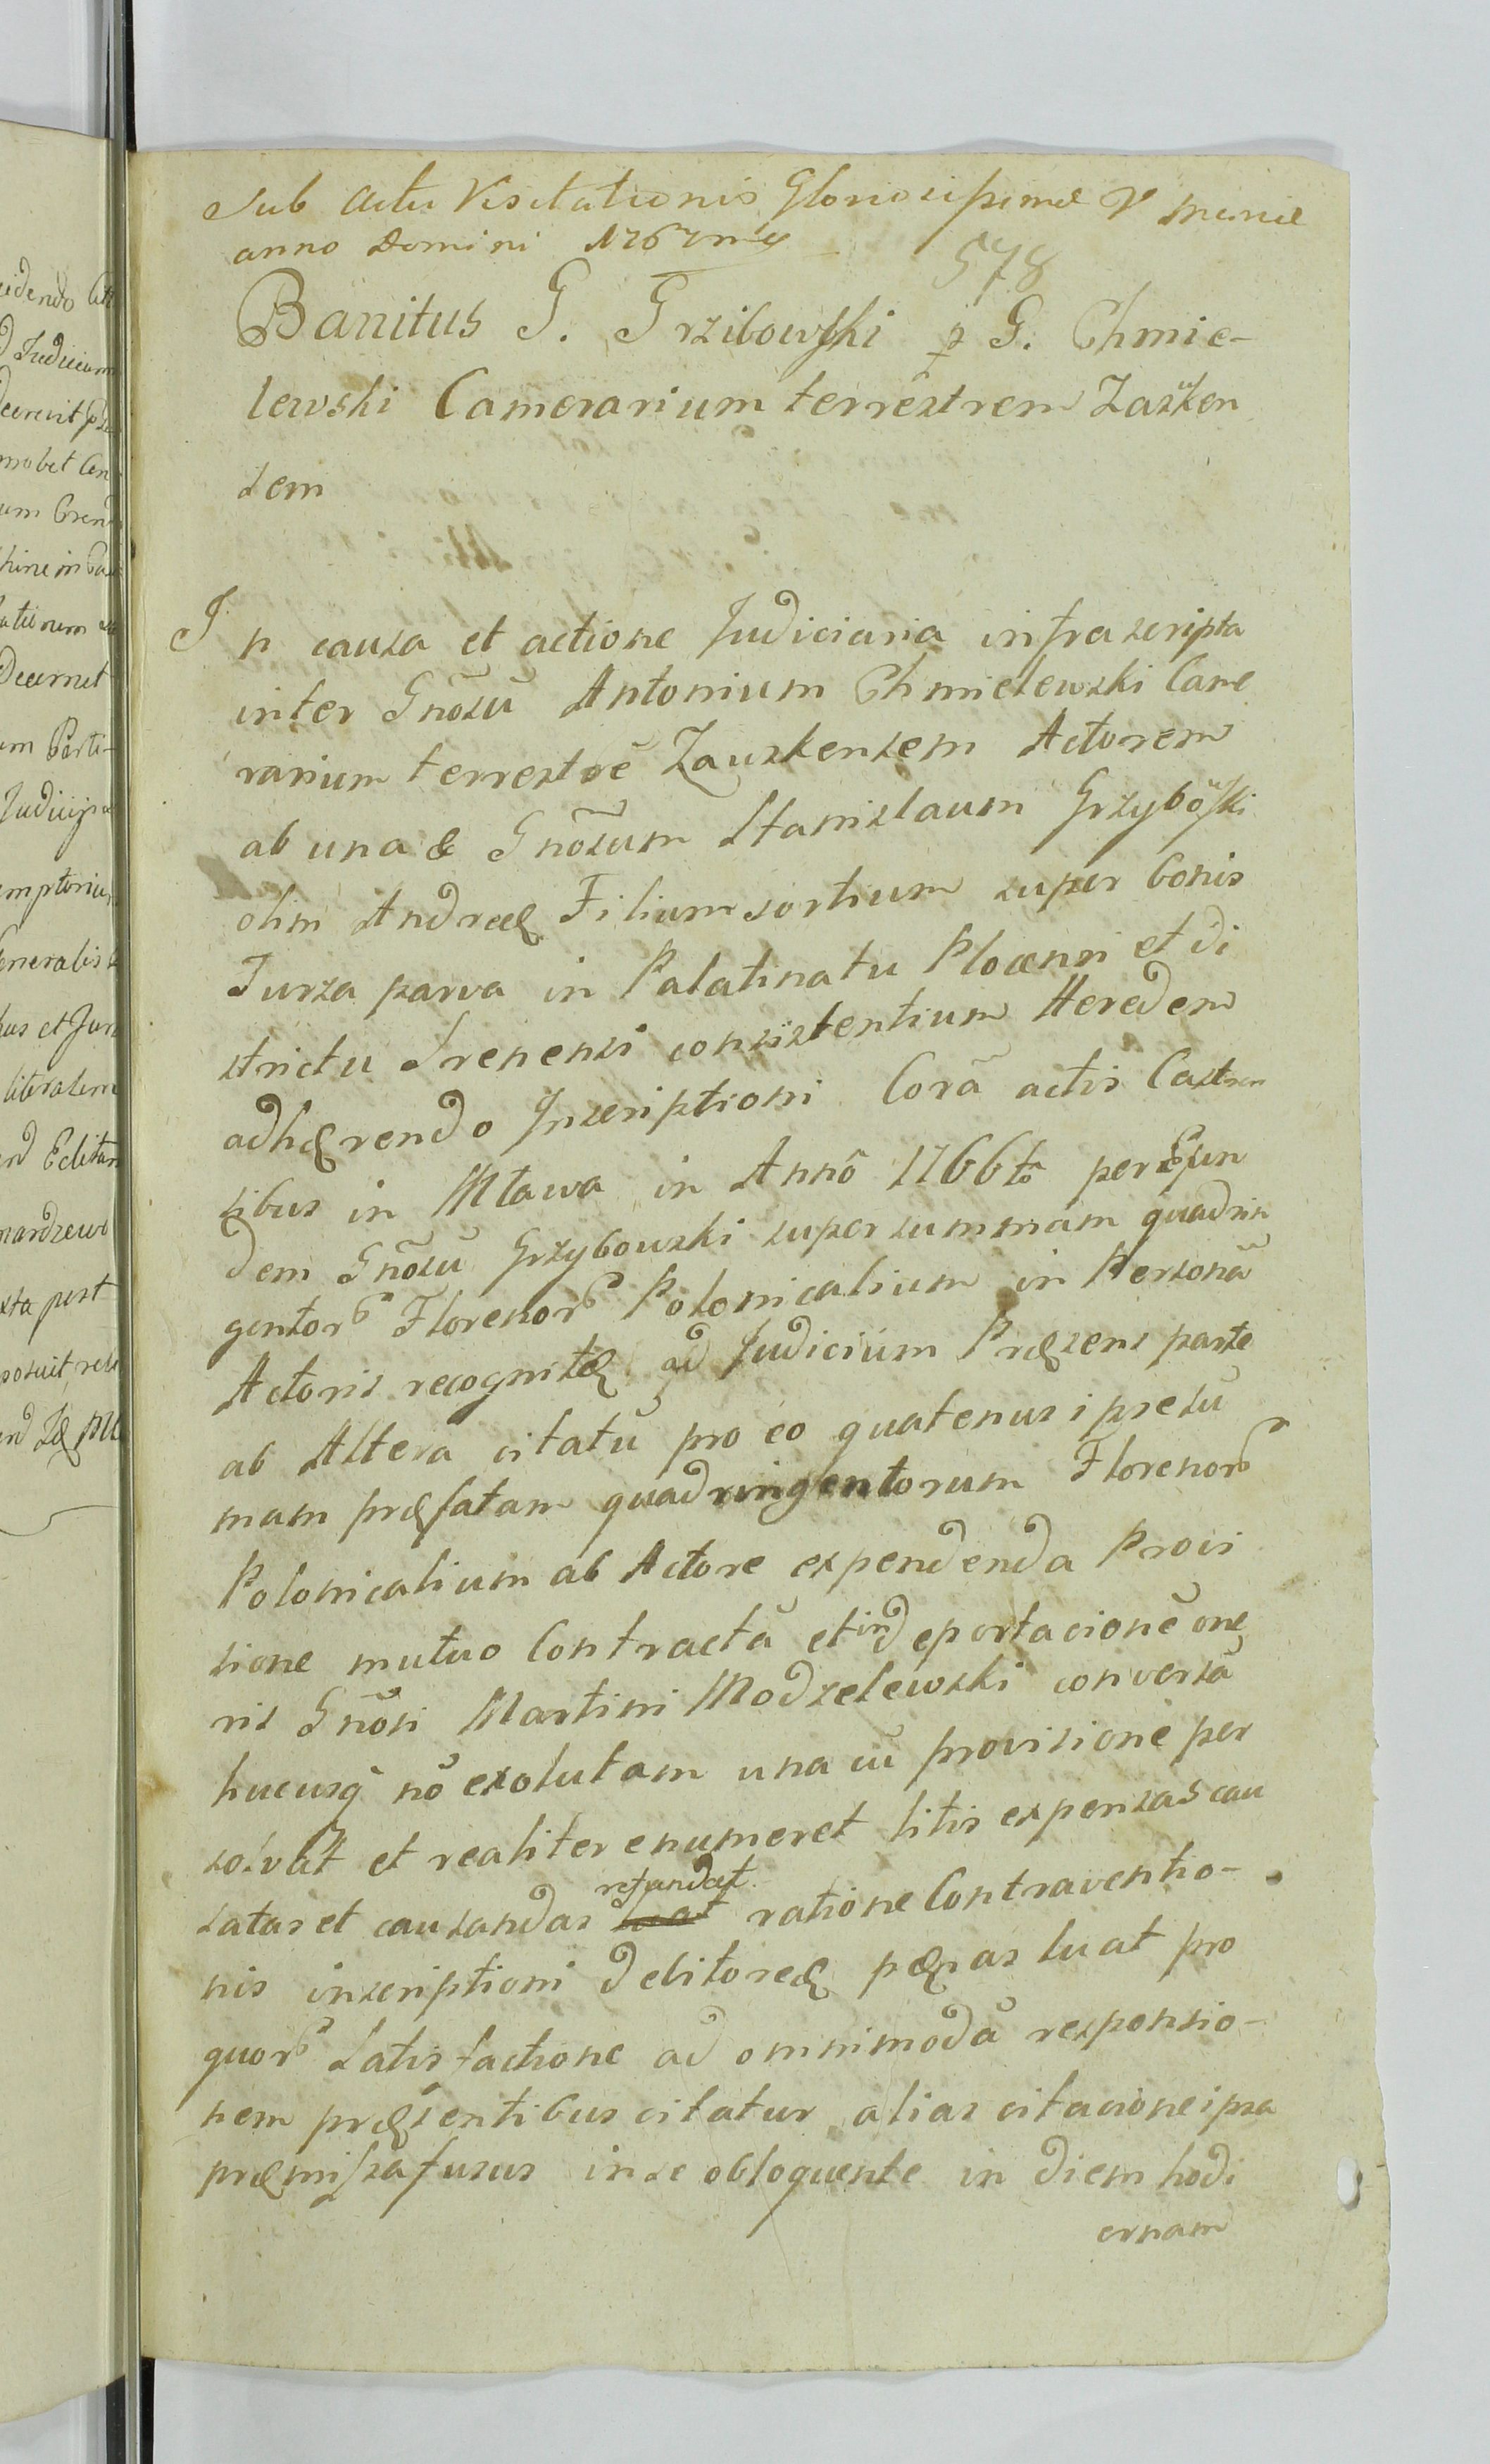 Sub Actu Visitationis Gloriosissimæ V Mariæ
anno Domini 1767mo
578
Banitus G. Grzibowski p G. Chmie-
lewski Camerarium terrestrem Zasken
sem
In causa et actione Judiciaria infrascripta
inter Gnõsũ Antonium Chmielewski Came
rarium terrestrẽ Zauskensem Actorem
ab una & Gnõsum Stanislaum Grzybõski
olim Andreæ Filium sortium super bonis
Turza parva in Palatinatu Plocensi et di
strictu Srenensi consistentium Heredem
adhærendo Inscriptioni Corã actis Castren
sibus in Mława in Annõ 1766to per Eun
dem Gnõsũ Grzybowski super summam quadrin
gentor Florenor Polonicalium in Personã
Actoris recognitæ ad Judicium Præsens parte
ab Altera citatũ pro eo quatenus ipse sũ
mam præfatam quadringentorum Florenor
Polonicalium ab Actore expendenda Provi
sione mutuo Contractã et in deportacionẽ one
ris Gnõsi Martini Modzelewski conversã
hucusq nõ exolutam una cũ provisione per
solvat et realiter enumeret litis expensas cau
satas et causandas refundat ratione Contraventio-
nis inscriptioni debitoreæ pænas luat pro
quor satisfactione ad omnimodã responsio-
nem præsentibus citatur alias citacione ipsa
præmissa fusus in se obloquente in diem hodi
ernam
eidendo
Judicium
decrevit
um
hine in
ationem
Decernet
um Parti-
emptoriu
Generalis
us et Jur
literalem
xta post
posuit